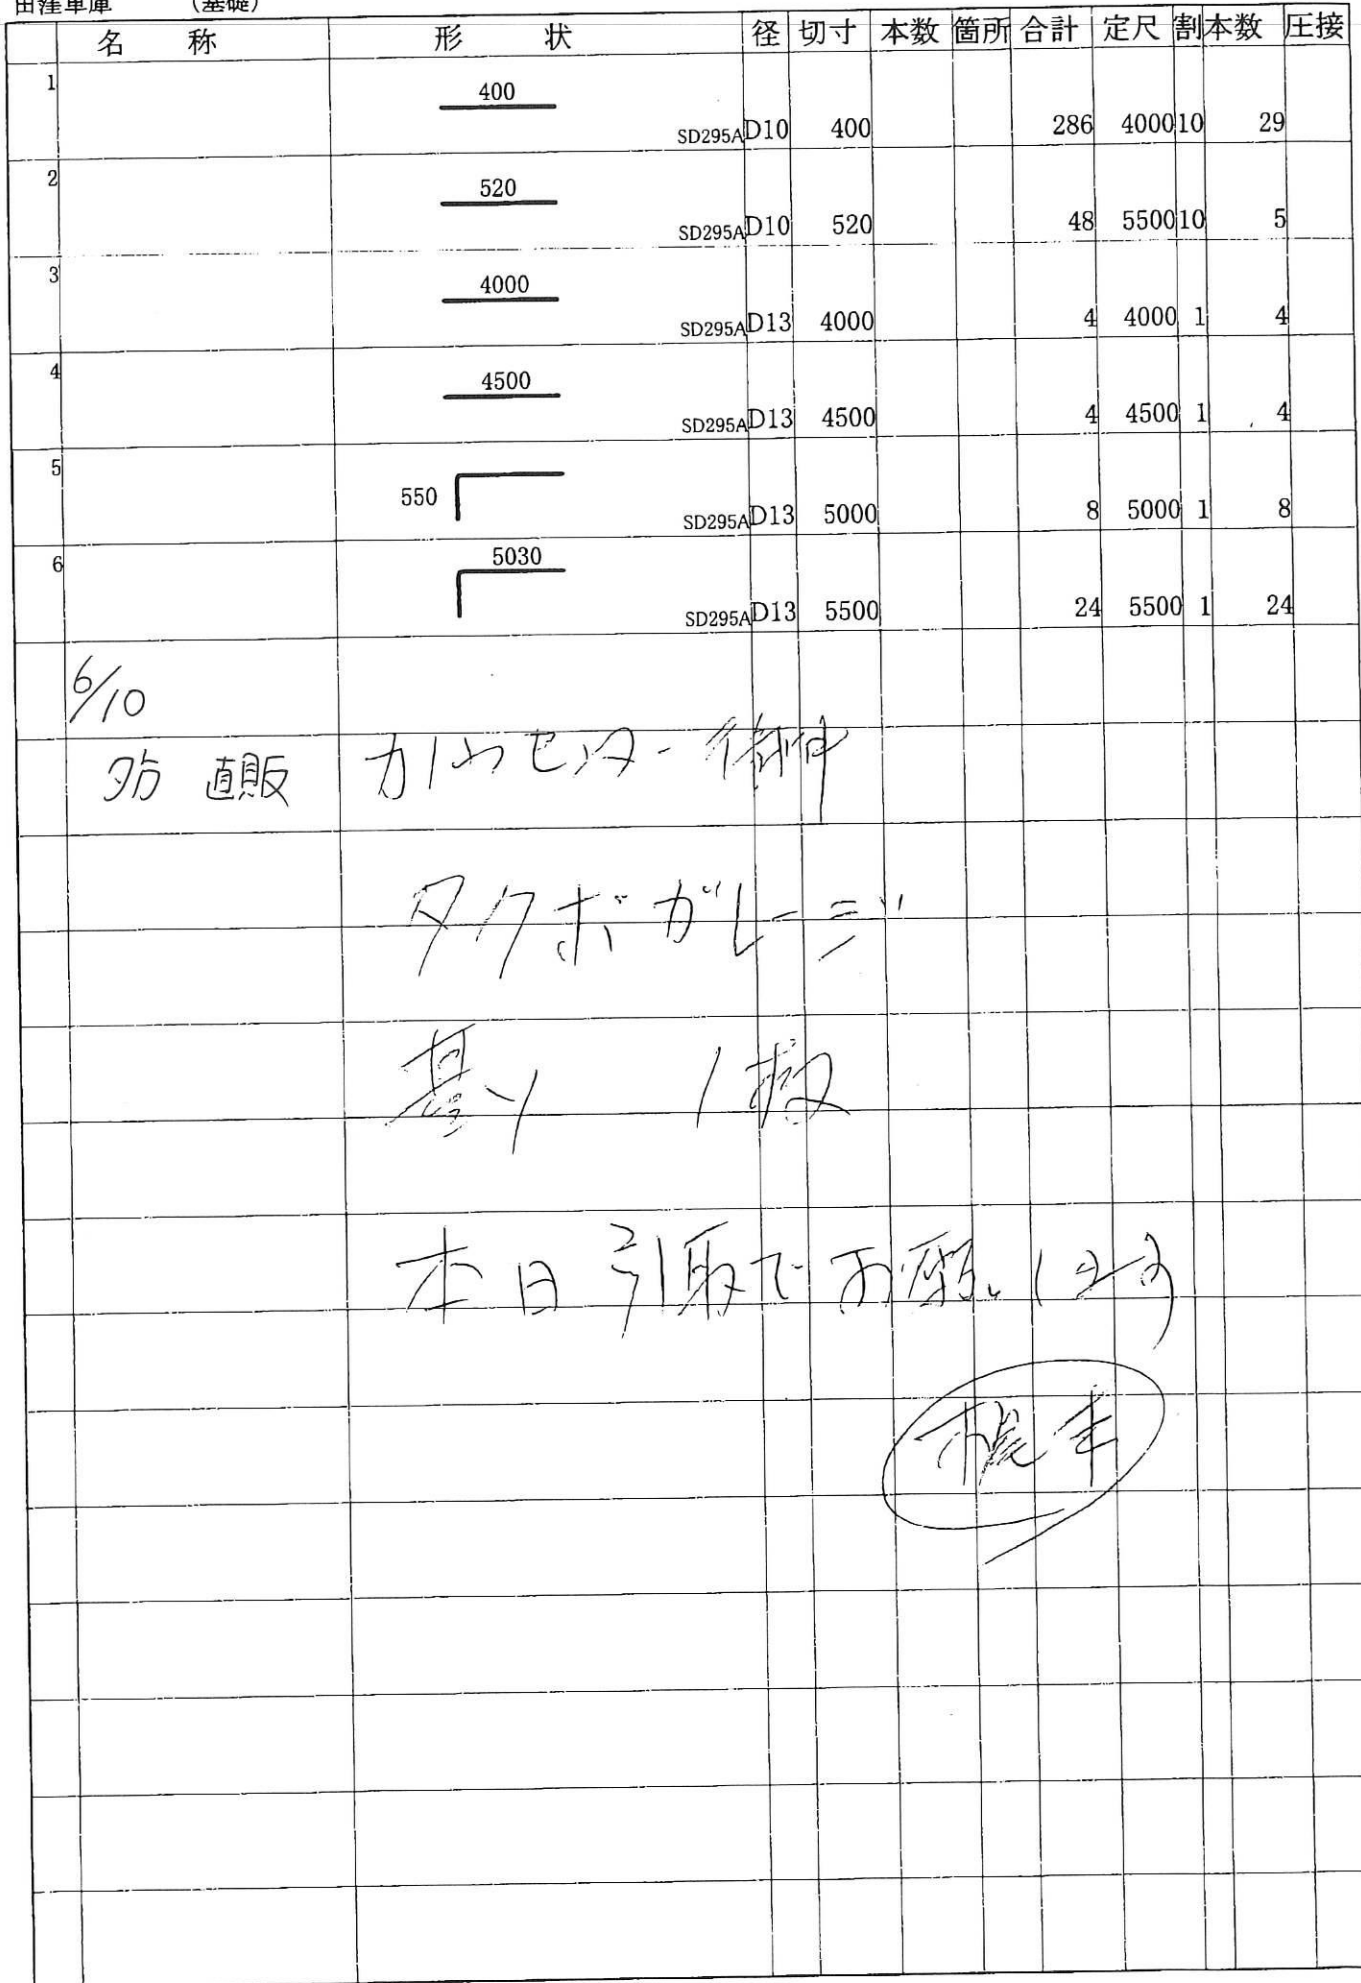 田窪車庫 (基礎)
名 称 形 状 径 切寸 本数 箇所 合計 定尺 割 本数 圧接
1 400 SD295A D10 400 286 4000 10 29
2 520 SD295A D10 520 48 5500 10 5
3 4000 SD295A D13 4000 4 4000 1 4
4 4500 SD295A D13 4500 4 4500 1 4
5 550 SD295A D13 5000 8 5000 1 8
6 5030 SD295A D13 5500 24 5500 1 24
6/10
直販 センター
タクボガレージ
基ソ 1
本日引取でお願いします